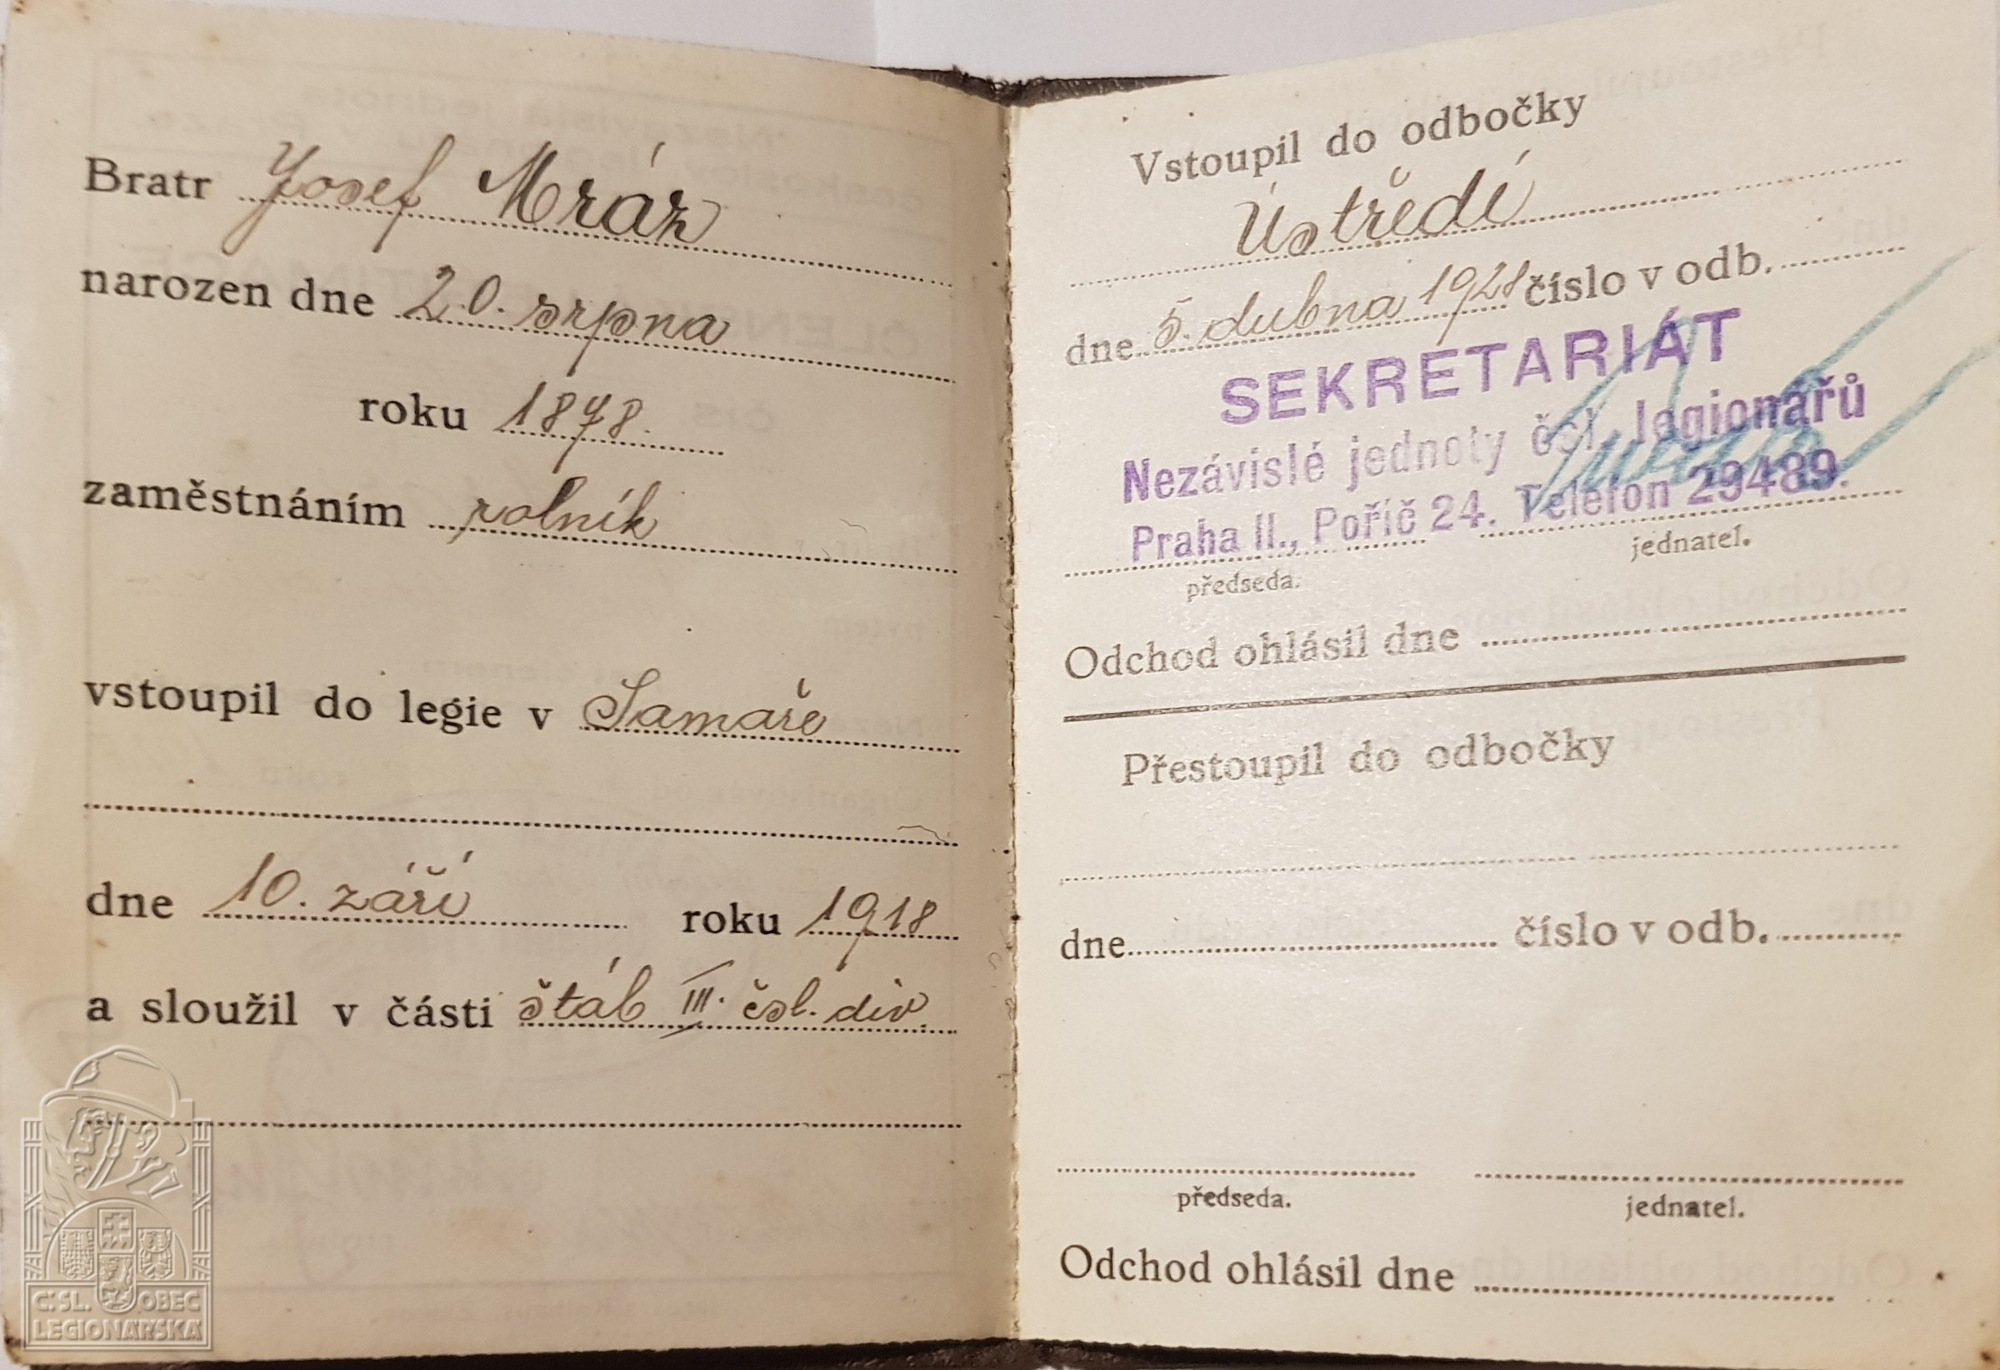 Bratr Josef Mráz
narozen dne 20. srpna
roku 1878.
zaměstnáním rolník
vstoupil do legie v Samaře
dne 10. září roku 1918
a sloužil v části štáb III. čsl. div.
Č.SL. OBEC
LEGIONÁŘSKÁ
Vstoupil do odbočky
Ústředí
dne 5. dubna 1928 číslo v odb.
SEKRETARIÁT
Nezávislé jednoty čsl. legionářů
Praha II., Poříč 24. Telefon 29489.
předseda. jednatel.
Odchod ohlásil dne
Přestoupil do odbočky
dne číslo v odb.
předseda. jednatel.
Odchod ohlásil dne